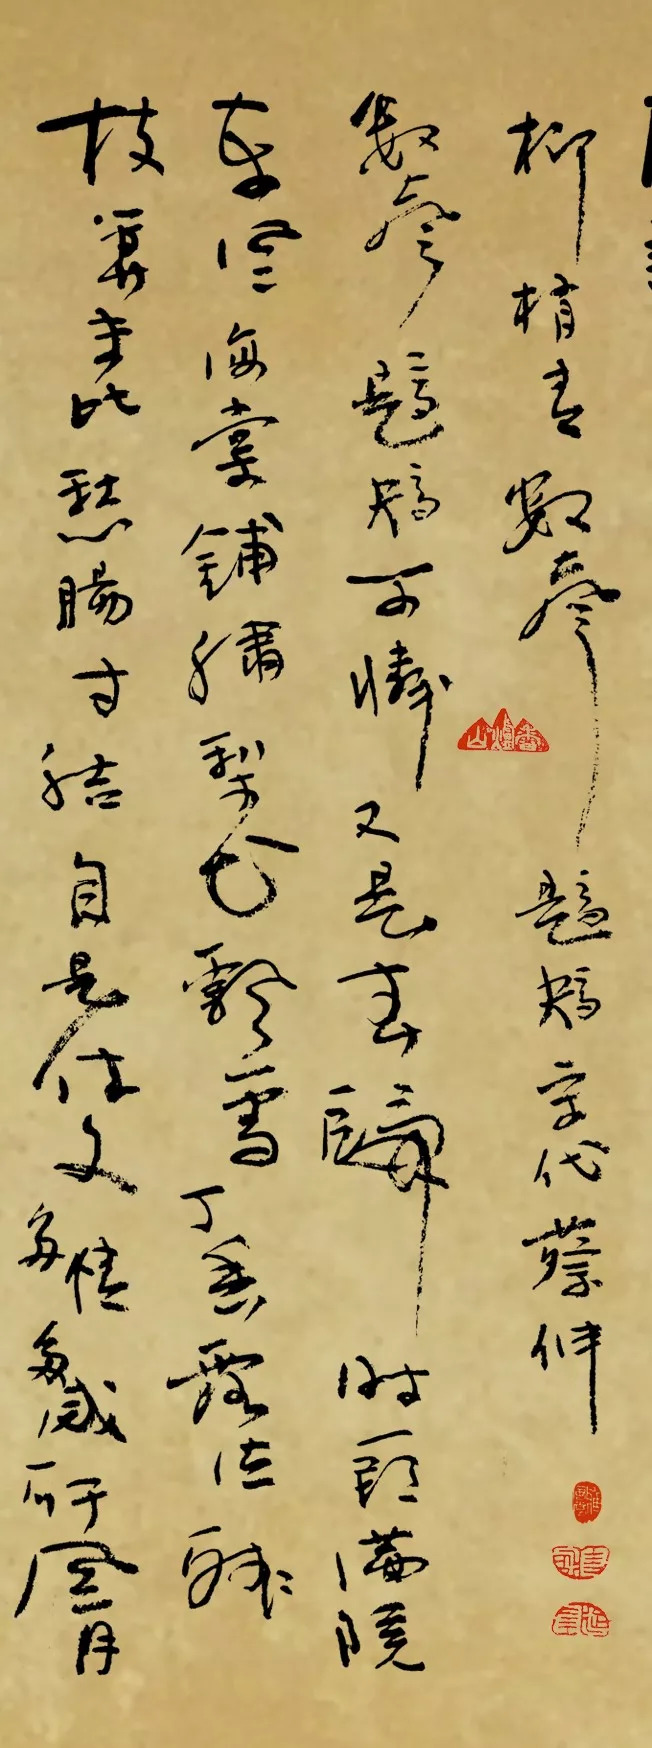 柳梢青數聲鶗鴂宋代蔡伸
數聲鶗鴂可憐又是春歸時節滿院
東風海棠鋪繡梨花飄雪丁香露泣殘
枝算未比愁腸寸結自是休文多情多感不干風月
香爐山